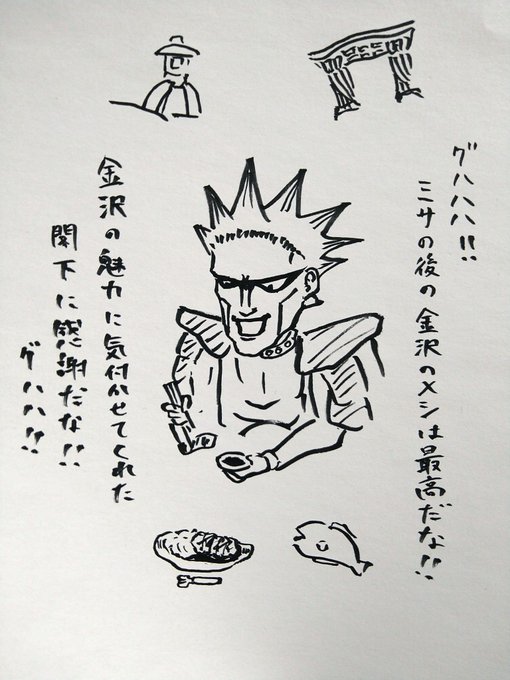 グハハハ!!
ミサの後の金沢のメシは最高だな!!
金沢の魅力に気付かせてくれた
閣下に感謝だな!!
グハハ!!